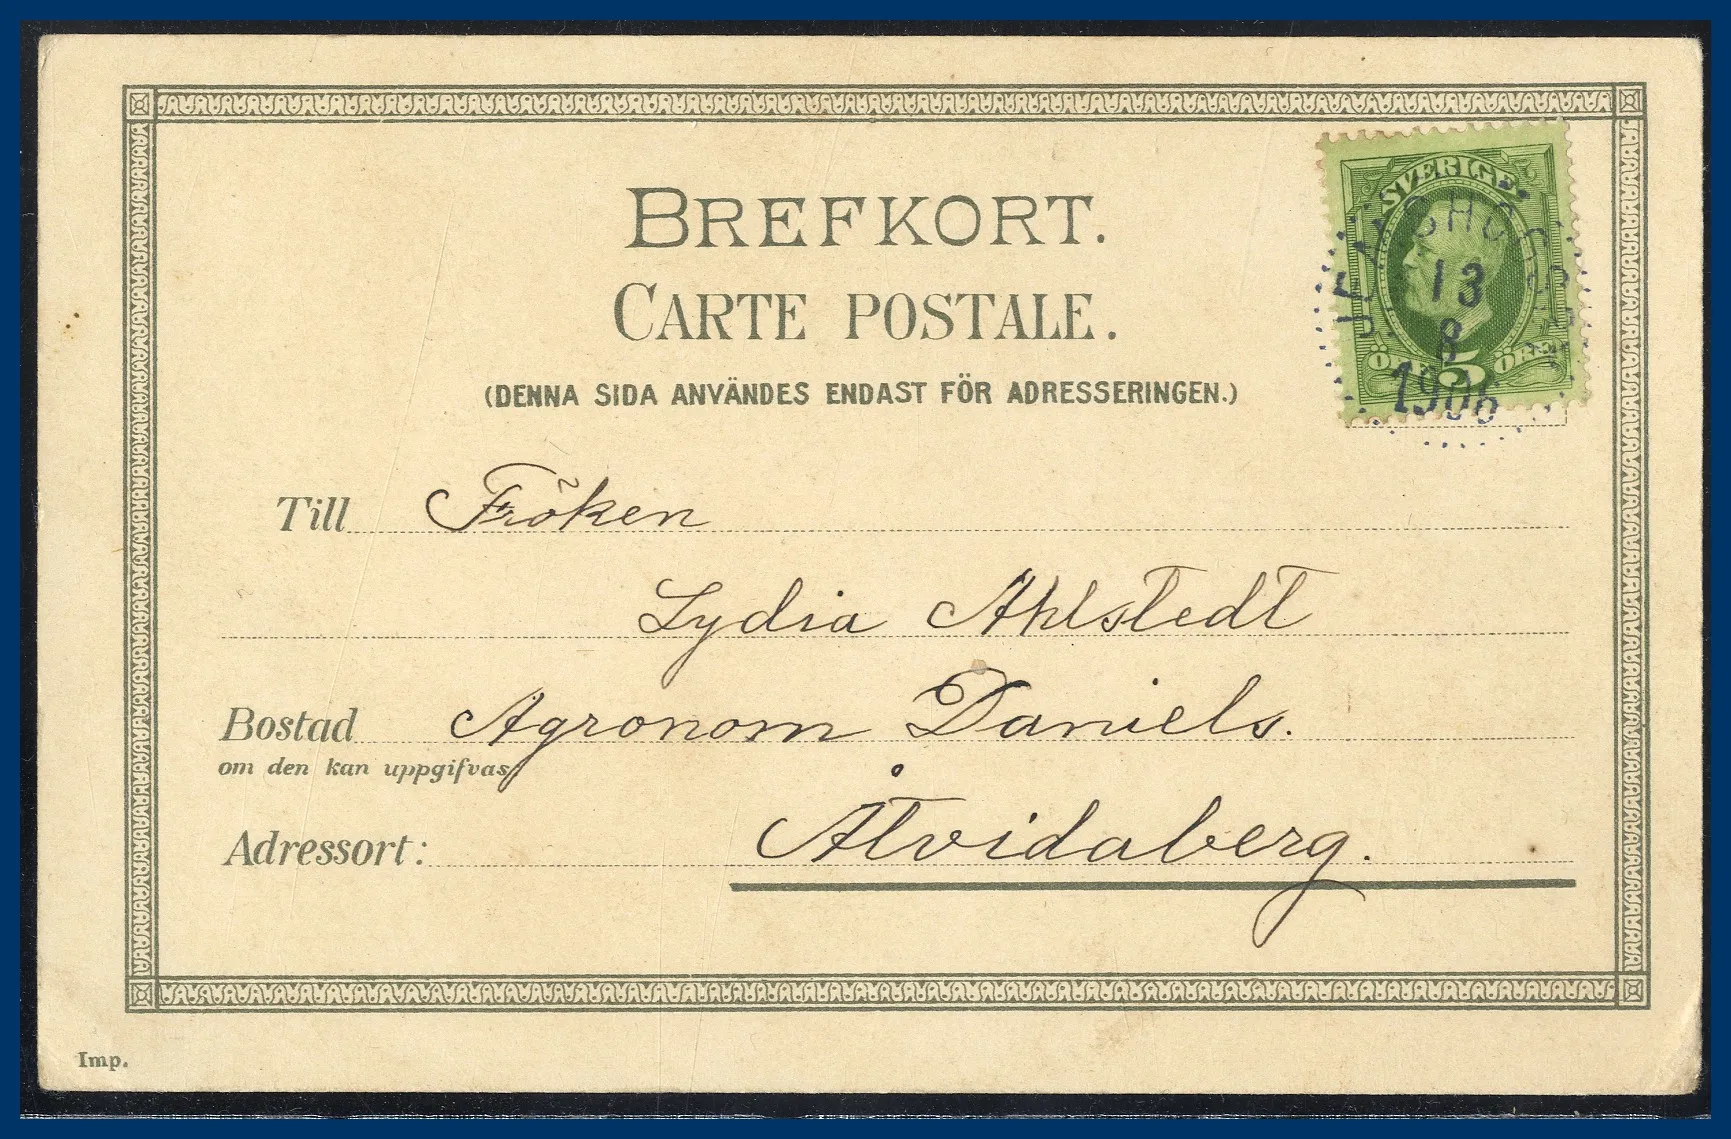 BREFKORT.
CARTE POSTALE.
(DENNA SIDA ANVÄNDES ENDAST FÖR ADRESSERINGEN.)
SVERIGE
13
8
1906
5
ÖRE
Till Fröken
Lydia Ahlstedt
Bostad Agronom Daniels.
om den kan uppgifvas
Åtvidaberg.
Adressort:
Imp.